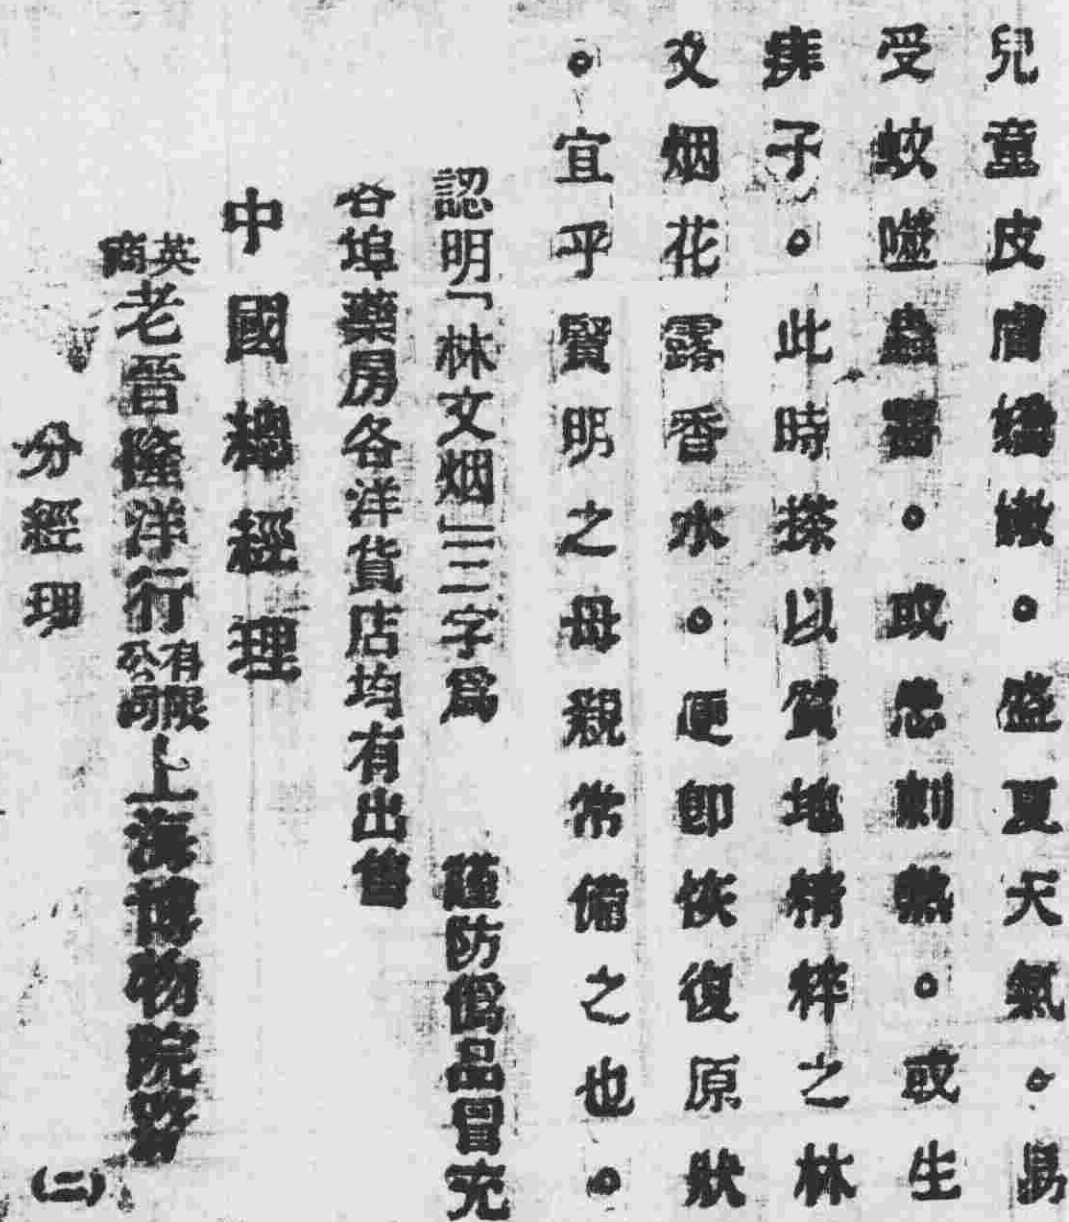 兒童皮膚嬌嫩。盛夏天氣。易
受蚊噬蟲螫。或患刺熱。或生
痱子。此時搽以質地精粹之林
文烟花露香水。便即恢復原狀
。宜乎賢明之母親常備之也。
認明「林文烟」三字爲 謹防僞品冒充
各埠藥房各洋貨店均有出售
中國總經理
英商老晉隆洋行有限公司上海博物院路
分經理
(二)